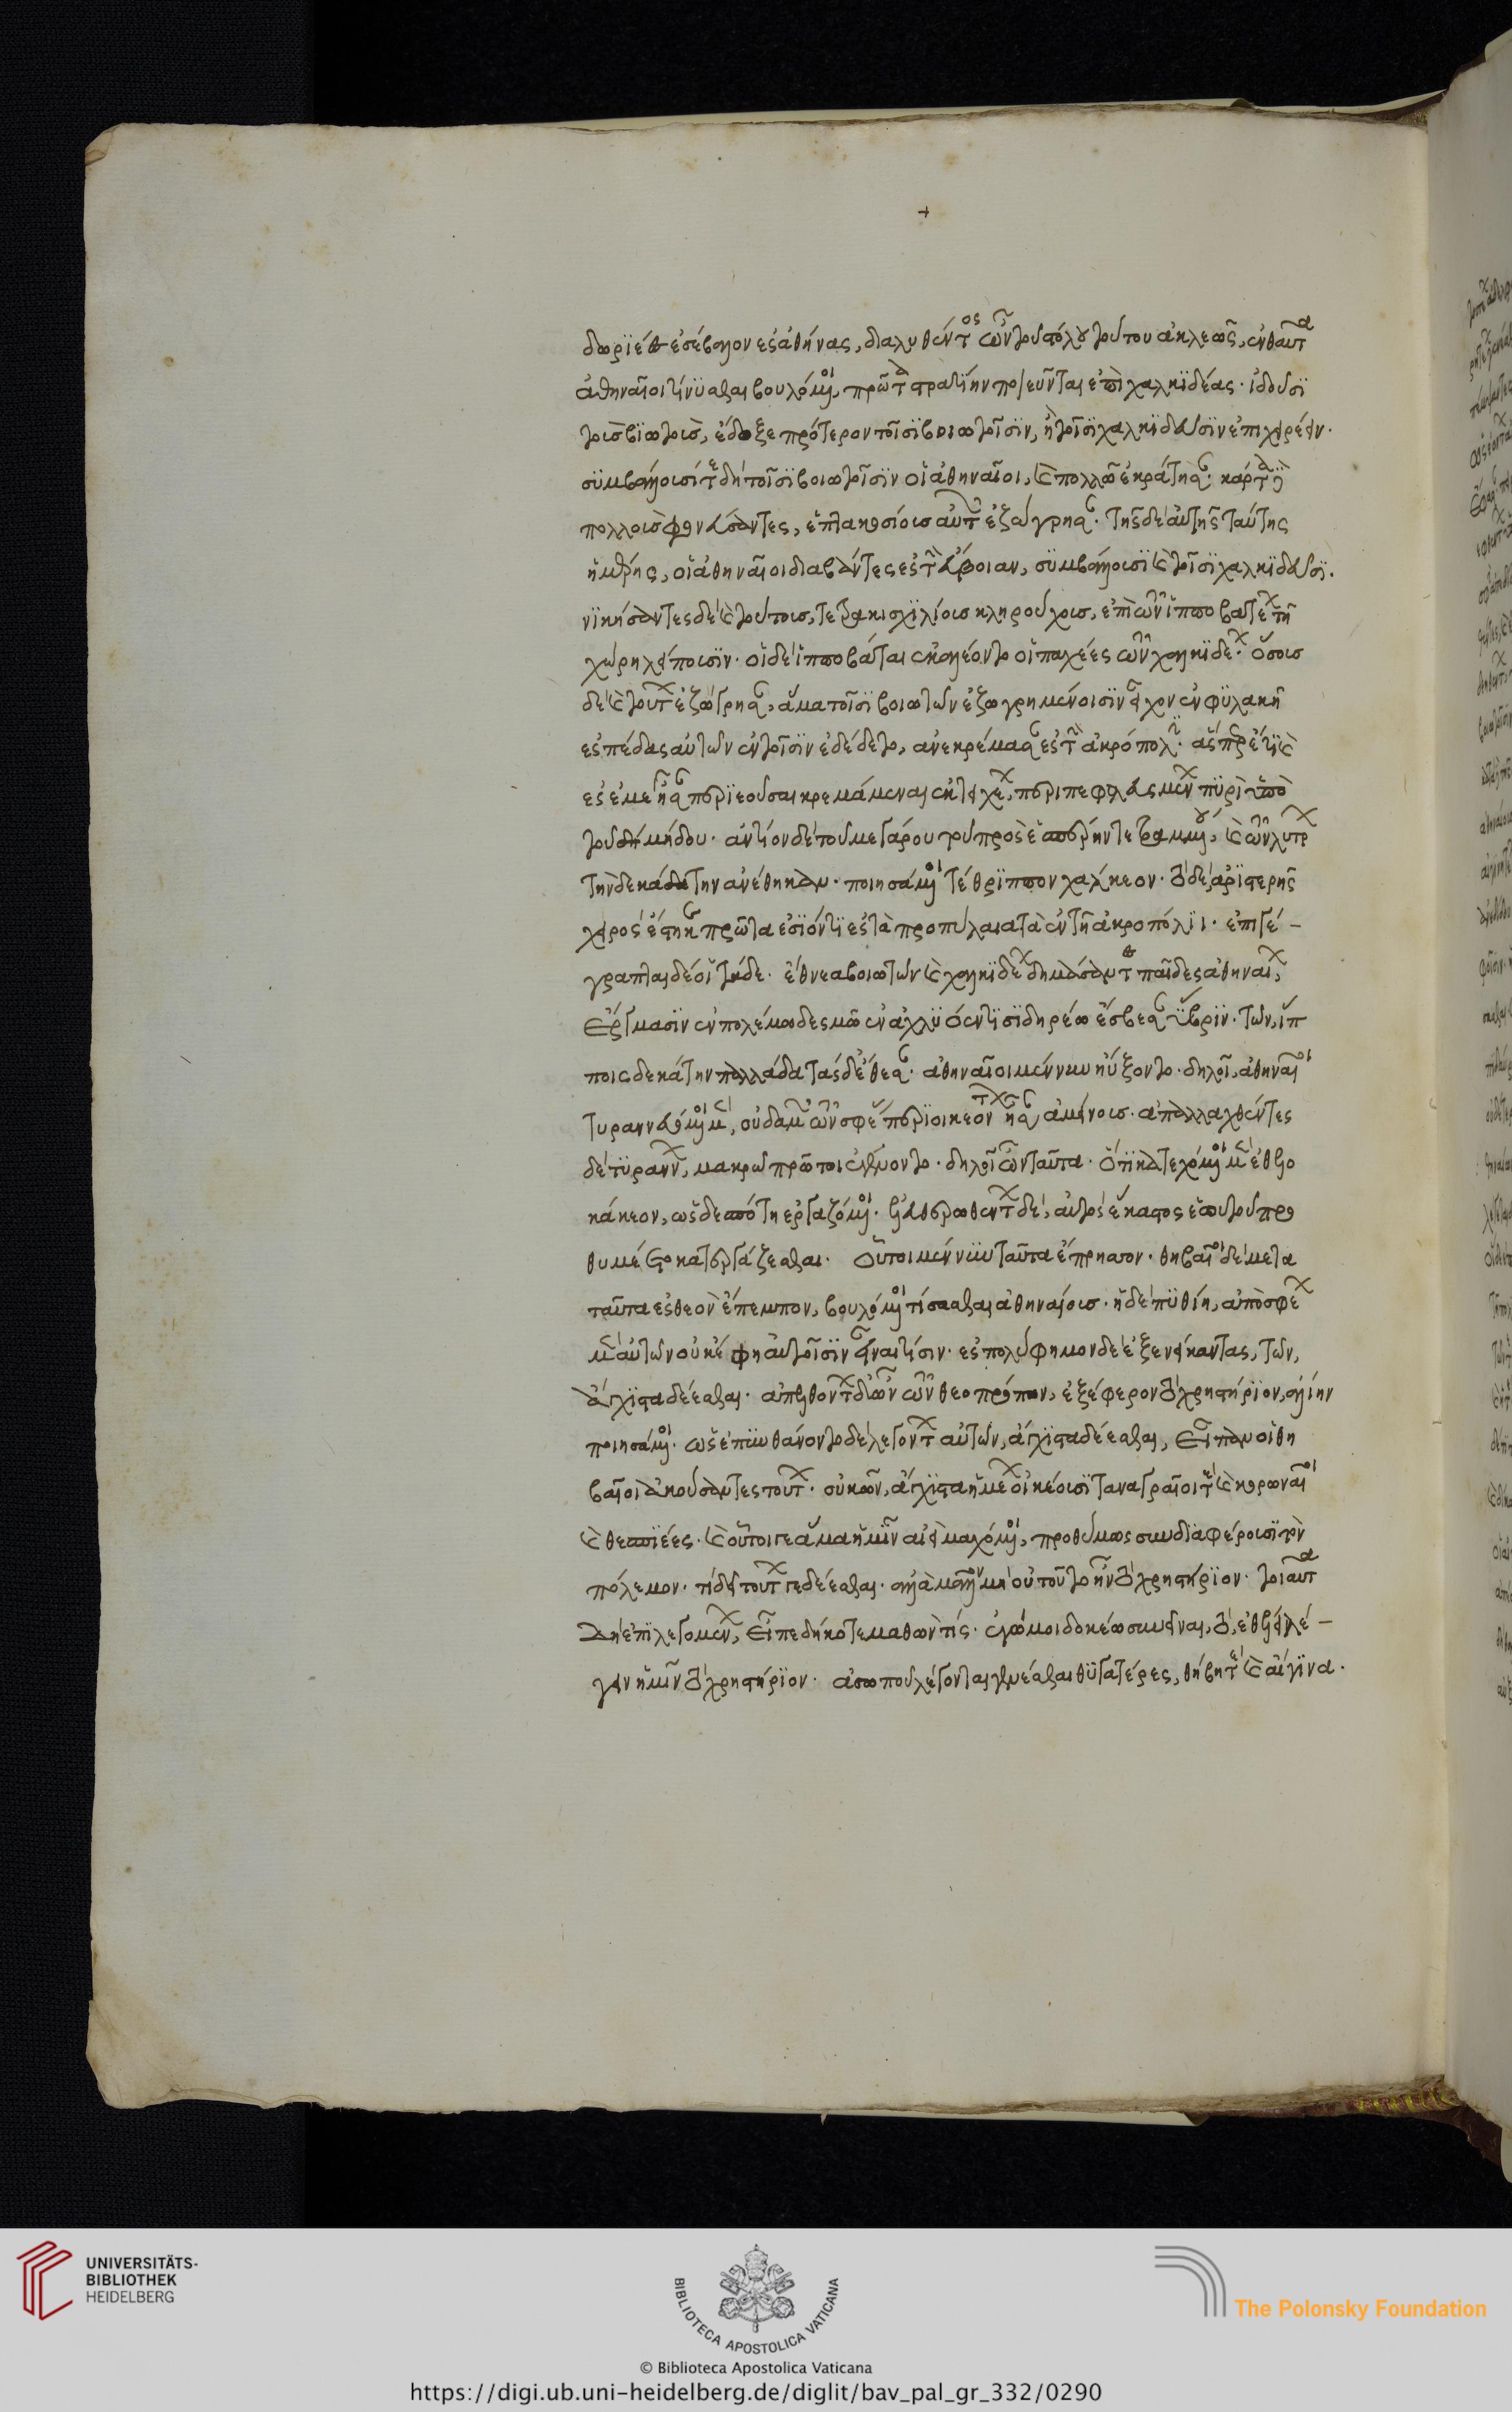 δωριέες ἐσέβαλον ἐς ἀθήνας, διαλυθέντος ὦν τοῦ στόλου τούτου ἀκλεῶς, ἐνθαῦτα
ἀθηναῖοι τίνυσθαι βουλόμενοι, πρῶτα στρατιὴν ποιεῦνται ἐπὶ χαλκιδέας. ἰδοῦσι
τοισβιωτοισ, ἔδοξε πρότερον τοῖσι βοιωτοῖσιν, ἢ τοῖσι χαλκιδεῦσιν ἐπιχειρέειν.
συμβάλλουσί τε δὴ τοῖσι βοιωτοῖσιν οἱ ἀθηναῖοι, καὶ πολλῶ ἐκράτησαν. κάρτα δὲ
πολλοὺς φονεύσαντες, ἑπτακοσίους αὐτῶν ἐζώγρησαν. τῆς δὲ αὐτῆς ταύτης
ἡμέρης, οἱ ἀθηναῖοι διαβάντες ἐς τὴν εὔβοιαν, συμβάλλουσι καὶ τοῖσι χαλκιδεῦσι.
νικήσαντες δὲ καὶ τούτους, τετρακισχιλίους κληρούχους, ἐπὶ τῶν ἱπποβατέων τῆ
χώρη λείπουσιν. οἱ δὲ ἱπποβάται ἐκαλέοντο οἱ παχέες τῶν χαλκιδέων. ὅσους
δὲ καὶ τούτων ἐζώγρησαν, ἅμα τοῖσι βοιωτῶν ἐζωγρημένοισιν εἶχον ἐν φυλακῆ
ἐς πέδας αὐτῶν ἐν τοῖσιν ἐδέδετο, ἀνεκρέμασαν ἐς τὴν ἀκρόπολιν. αἵπερ ἔτι καὶ
ἐς ἐμὲ ἦσαν περιεοῦσαι κρεμάμεναι ἐκ τειχέων, περιπεφλευσμένων πυρὶ ὑπὸ
τοῦ μήδου. ἀντίον δὲ τοῦ μεγάρου τοῦ πρὸς ἑσπέρην τετραμμένου, καὶ τῶν λύτρων
τὴν δεκάτην ἀνέθηκαν. ποιησάμενοι τέθριππον χάλκεον. τὸ δὲ ἀριστερῆς
χειρὸς ἕστηκε πρῶτα ἐσιόντι ἐς τὰ προπύλαια τὰ ἐν τῆ ἀκροπόλιι. ἐπιγέ–
γραπται δέ οἱ τάδε. ἔθνεα βοιωτῶν καὶ χαλκιδέων δημάσαντες παῖδες ἀθηναίων,
ἔργμασιν ἐν πολέμω δεσμῶ ἐν ἀχλυόεντι σιδηρέω ἔσβεσαν ὕβριν. τῶν, ἵπ
ποις δεκάτην παλλάδα τάσδ' ἔθεσαν. ἀθηναῖοι μέν νυν ηὔξοντο. δηλοῖ, ἀθηναῖοι
τυραννευόμενοι μὲν, οὐδαμῶν τῶν σφέας περιοικεόντων ἦσαν ἀμείνους. ἀπαλλαχθέντες
δὲ τυράννων, μακρῶ πρῶτοι ἐγένοντο. δηλοῖ ὦν ταῦτα. ὅτι κατεχόμενοι μὲν ἐθελο
κάκεον, ὡς δεσπότη ἐργαζόμενοι. ἐλευθερωθέντων δὲ, αὐτὸς ἕκαστος ἑωυτοῦ προ
θυμέετο κατεργάζεσθαι. οὗτοι μέν νυν ταῦτα ἔπρησσον. θηβαῖοι δὲ μετα
ταῦτα ἐς θεὸν ἔπεμπον, βουλόμενοι τίσασθαι ἀθηναίους. ἡ δὲ πυθίη, ἀπὸ σφέων
μὲν αὐτῶν οὐκ ἔφη αὐτοῖσιν εἶναι τίσιν. ἐς πολύφημον δὲ ἐξενείκαντας, τῶν,
ἄγχιστα δέεσθαι. ἀπελθόντων ὦν τῶν θεοπρόπων, ἐξέφερον τὸ χρηστήριον, ἁλίην
ποιησάμενοι. ὡς ἐπυνθάνοντο δὲ λεγόντων αὐτῶν, ἄγχιστα δέεσθαι, εἶπαν οἱ θη
βαῖοι ἀκούσαντες τούτων. οὐκῶν, ἄγχιστα ἡμέων οἰκέουσι ταναγραῖοί τε καὶ κορωναῖοι
καὶ θεσπιέες. καὶ οὗτοί γε ἅμα ἡμῖν αἰεὶ μαχόμενοι, προθύμως συνδιαφέρουσι τὸν
πόλεμον. τί δεῖ τούτων γε δέεσθαι. ἀλλὰ μᾶλλον μὴ οὐ τοῦτο ἦν τὸ χρηστήριον. τοιαῦτα
δὴ ἐπιλεγομένων, εἶπε δήκοτε μαθών τίς. ἐγώ μοι δοκέω συνιέναι, τὸ, ἐθέλει λέ–
γειν ἡμῖν τὸ χρηστήριον. ἀσωποῦ λέγονται γενέσθαι θυγατέρες, θήβη τε καὶ αἴγινα.
UNIVERSITÄTS-
BIBLIOTHEK
HEIDELBERG
BIBLIOTECA APOSTOLICA VATICANA
The Polonsky Foundation
© Biblioteca Apostolica Vaticana
https://digi.ub.uni-heidelberg.de/diglit/bav_pal_gr_332/0290